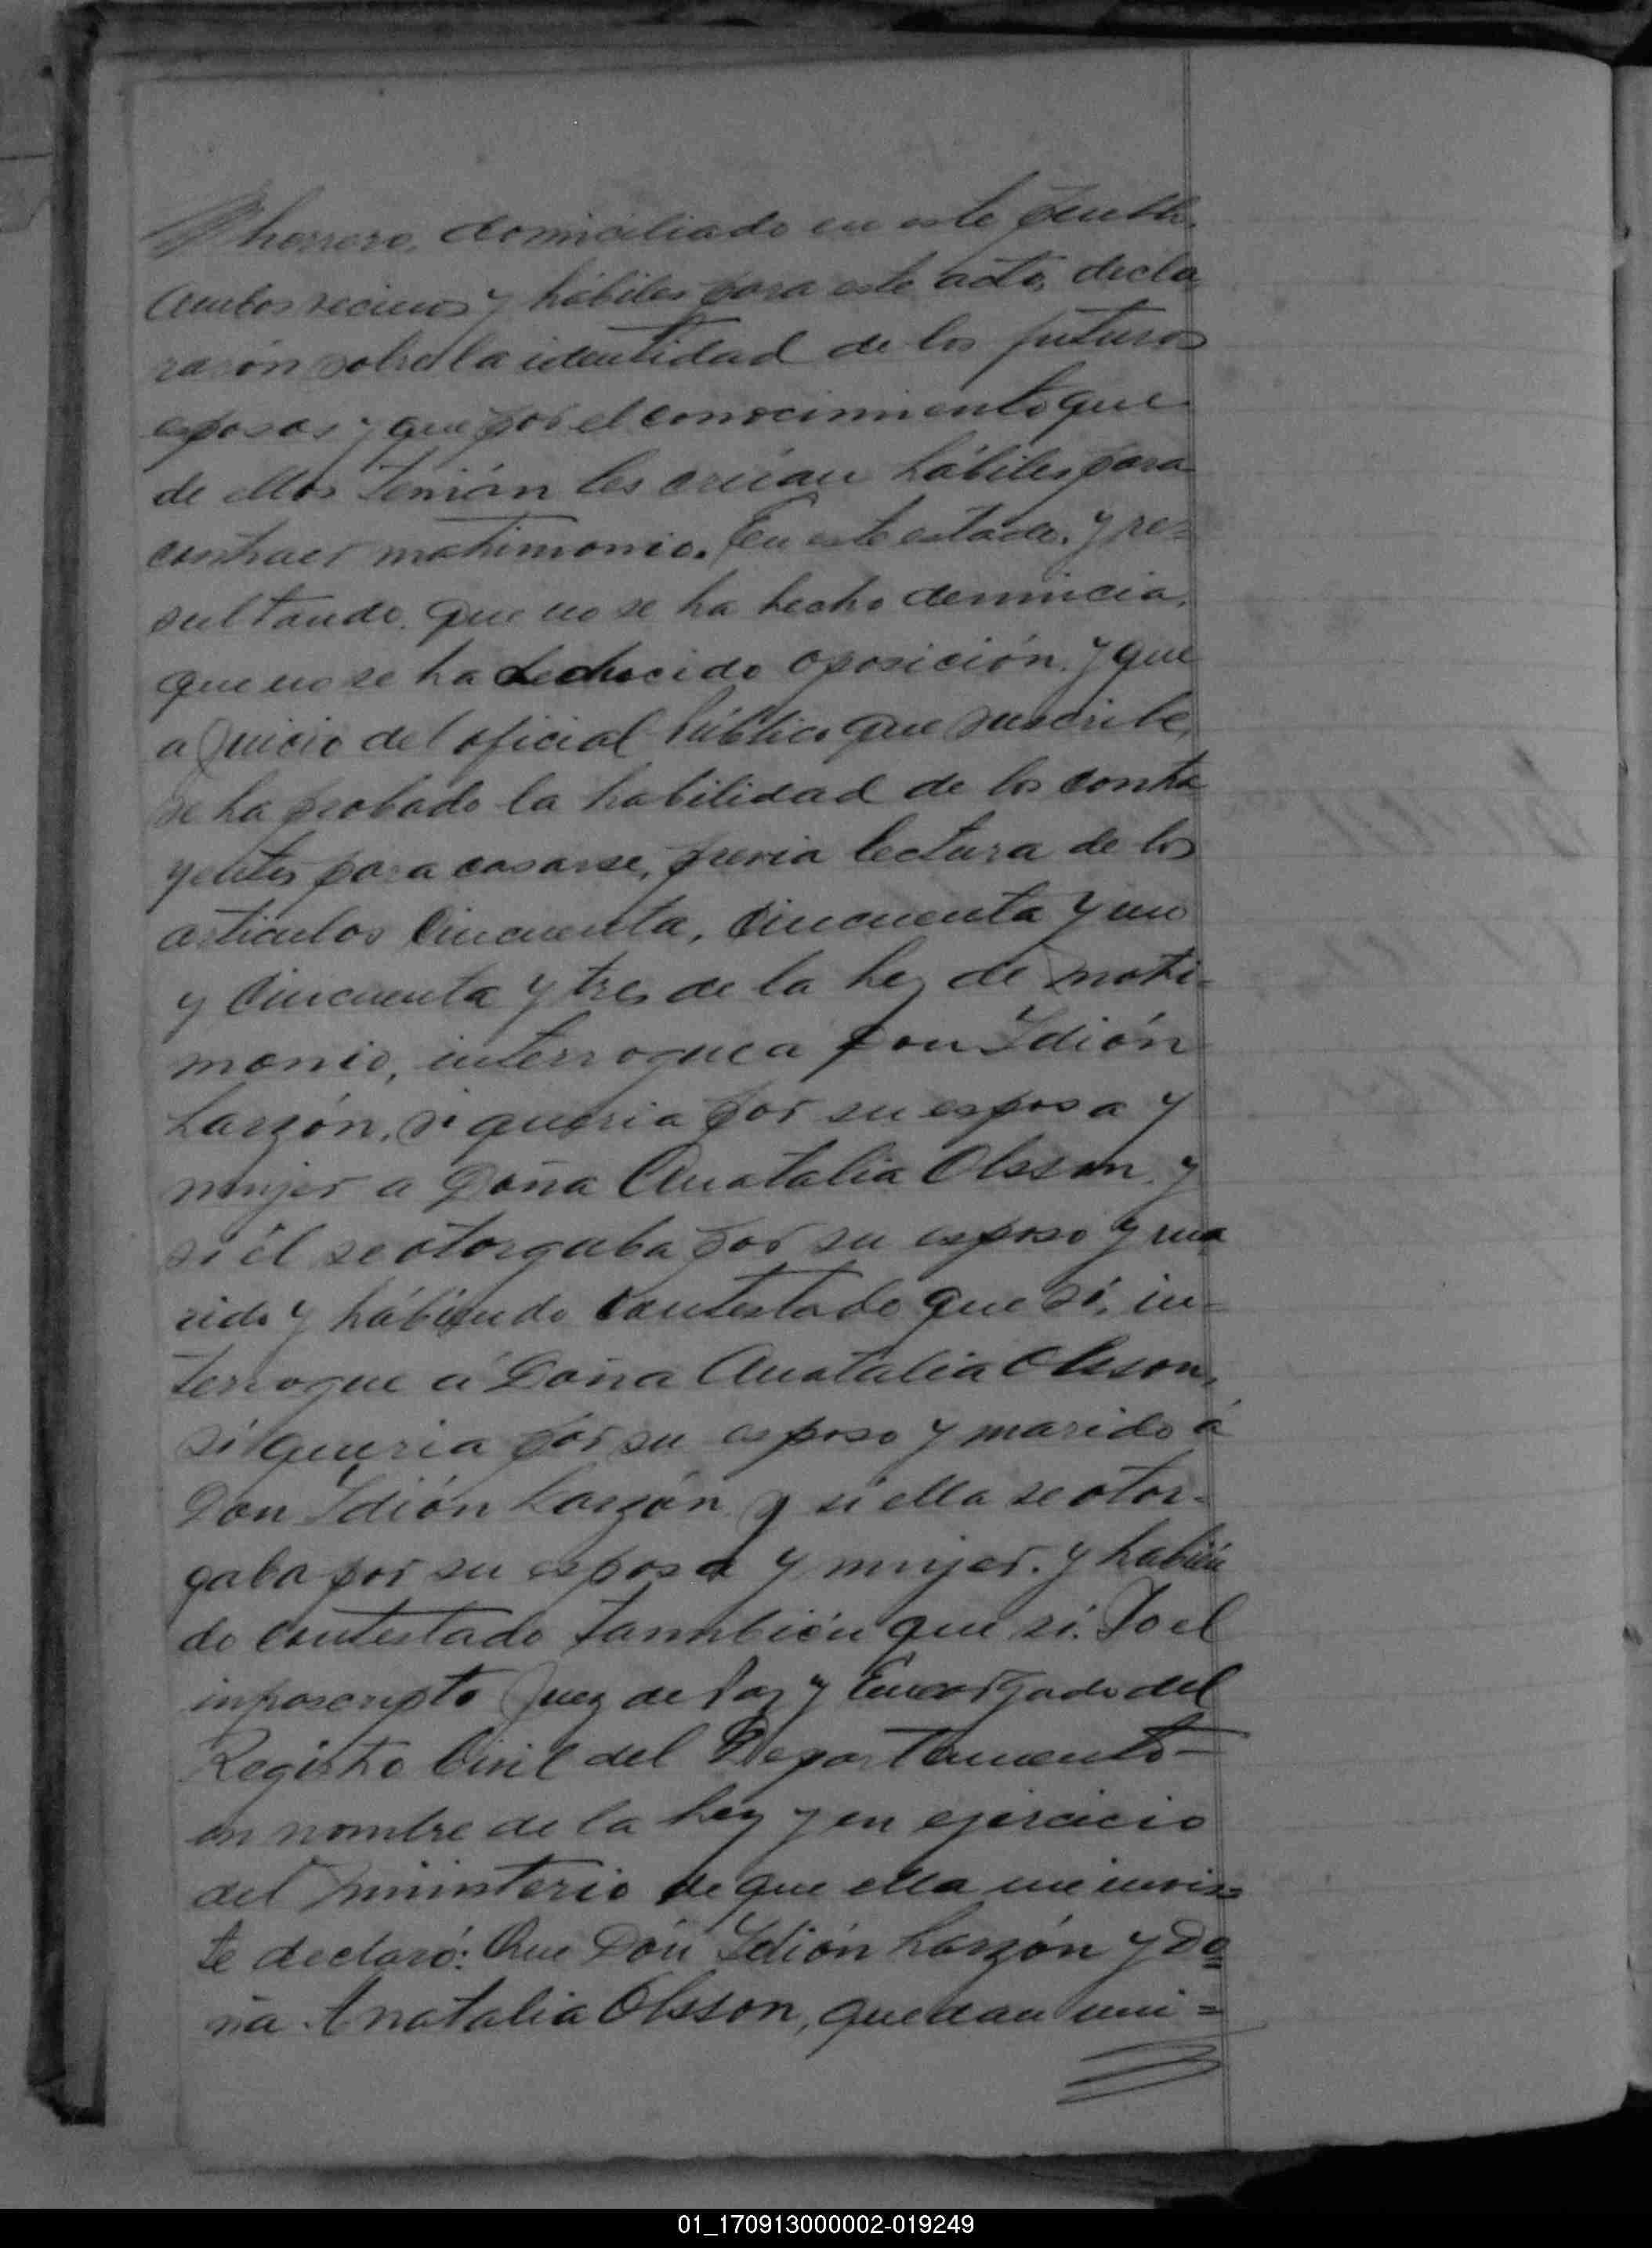 herrero, domiciliado en este pueblo.
Ambos vecinos y hábiles para este acto, decla
rarón sobre la identidad de los futuros
esposos y que por el conocimiento que
de ellos tenián les creían hábiles para
contraer matrimonio. En este estado. y re=
sultando, que no se ha hecho denuncia,
que no se ha deducido oposición, y que
a Juicio del oficial Público que suscribe,
se ha probado la habilidad de los contra
yentes para casarse, previa lectura de los
articulos Cincuenta, Cincuenta y uno
y Cincuenta y tres de la Ley de matri-
monio, interrogue a Don Idión
Larzón, si queria por su esposa y
mujer a Doña Anatalia Olsson, y
si él se otorgaba por su esposo y ma
rido y hábiendo contestado que sí, in=
terrogue á Doña Anatalia Olsson,
si queria por su esposo y marido á
Don Idión Larzón y si ella se otor-
gaba por su esposa y mujer. y habién
do contestado tambbién que sí. Yo el
infrascripto Juez de Paz y Encargado del
Registro Civil del Departamento—
en nombre de la Ley y en ejercicio
del ministerio de que ella me invis=
te declaró: Que Dón Idión Larzón y Do=
ña Anatalia Olsson, quedan uni=
01_170913000002-019249